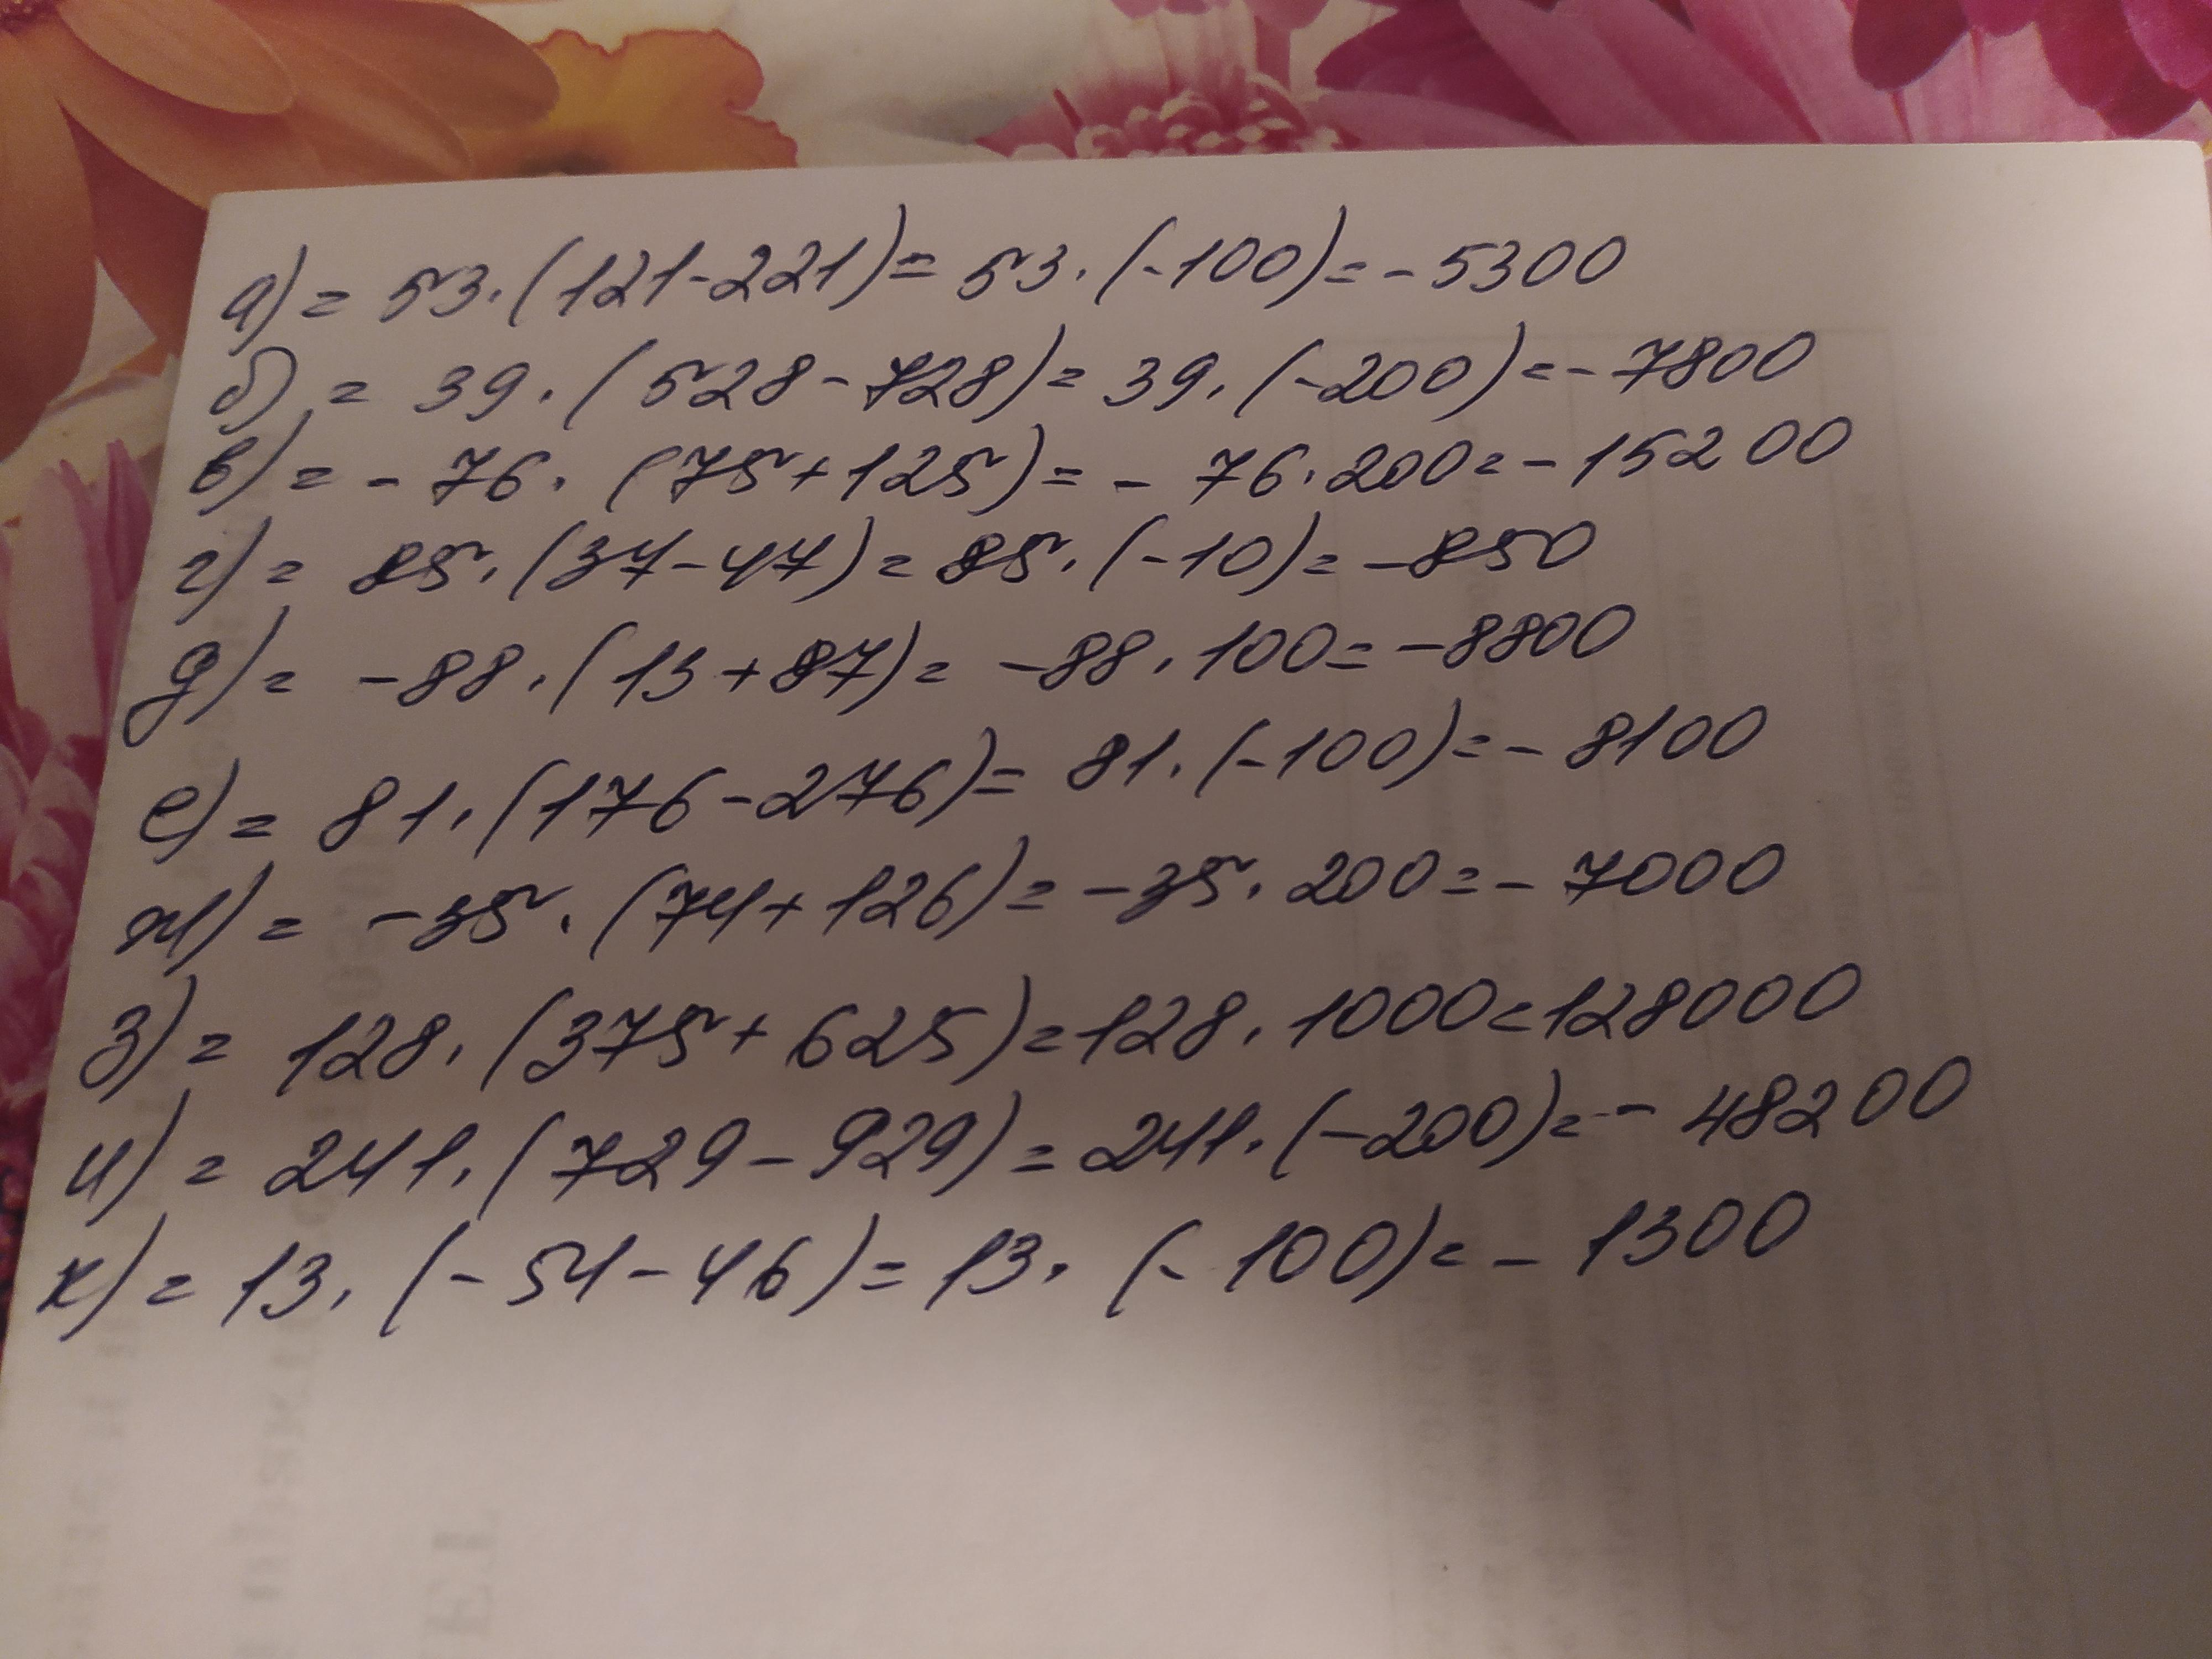 а) = 53·(121-221) = 53·(-100) = -5300
б) = 39·(528-728) = 39·(-200) = -7800
в) = -76·(75+125) = -76·200 = -15200
г) = 85·(37-47) = 85·(-10) = -850
д) = -88·(13+87) = -88·100 = -8800
е) = 81·(176-276) = 81·(-100) = -8100
ж) = -35·(74+126) = -35·200 = -7000
з) = 128·(375+625) = 128·1000 = 128000
и) = 241·(729-929) = 241·(-200) = -48200
к) = 13·(-54-46) = 13·(-100) = -1300